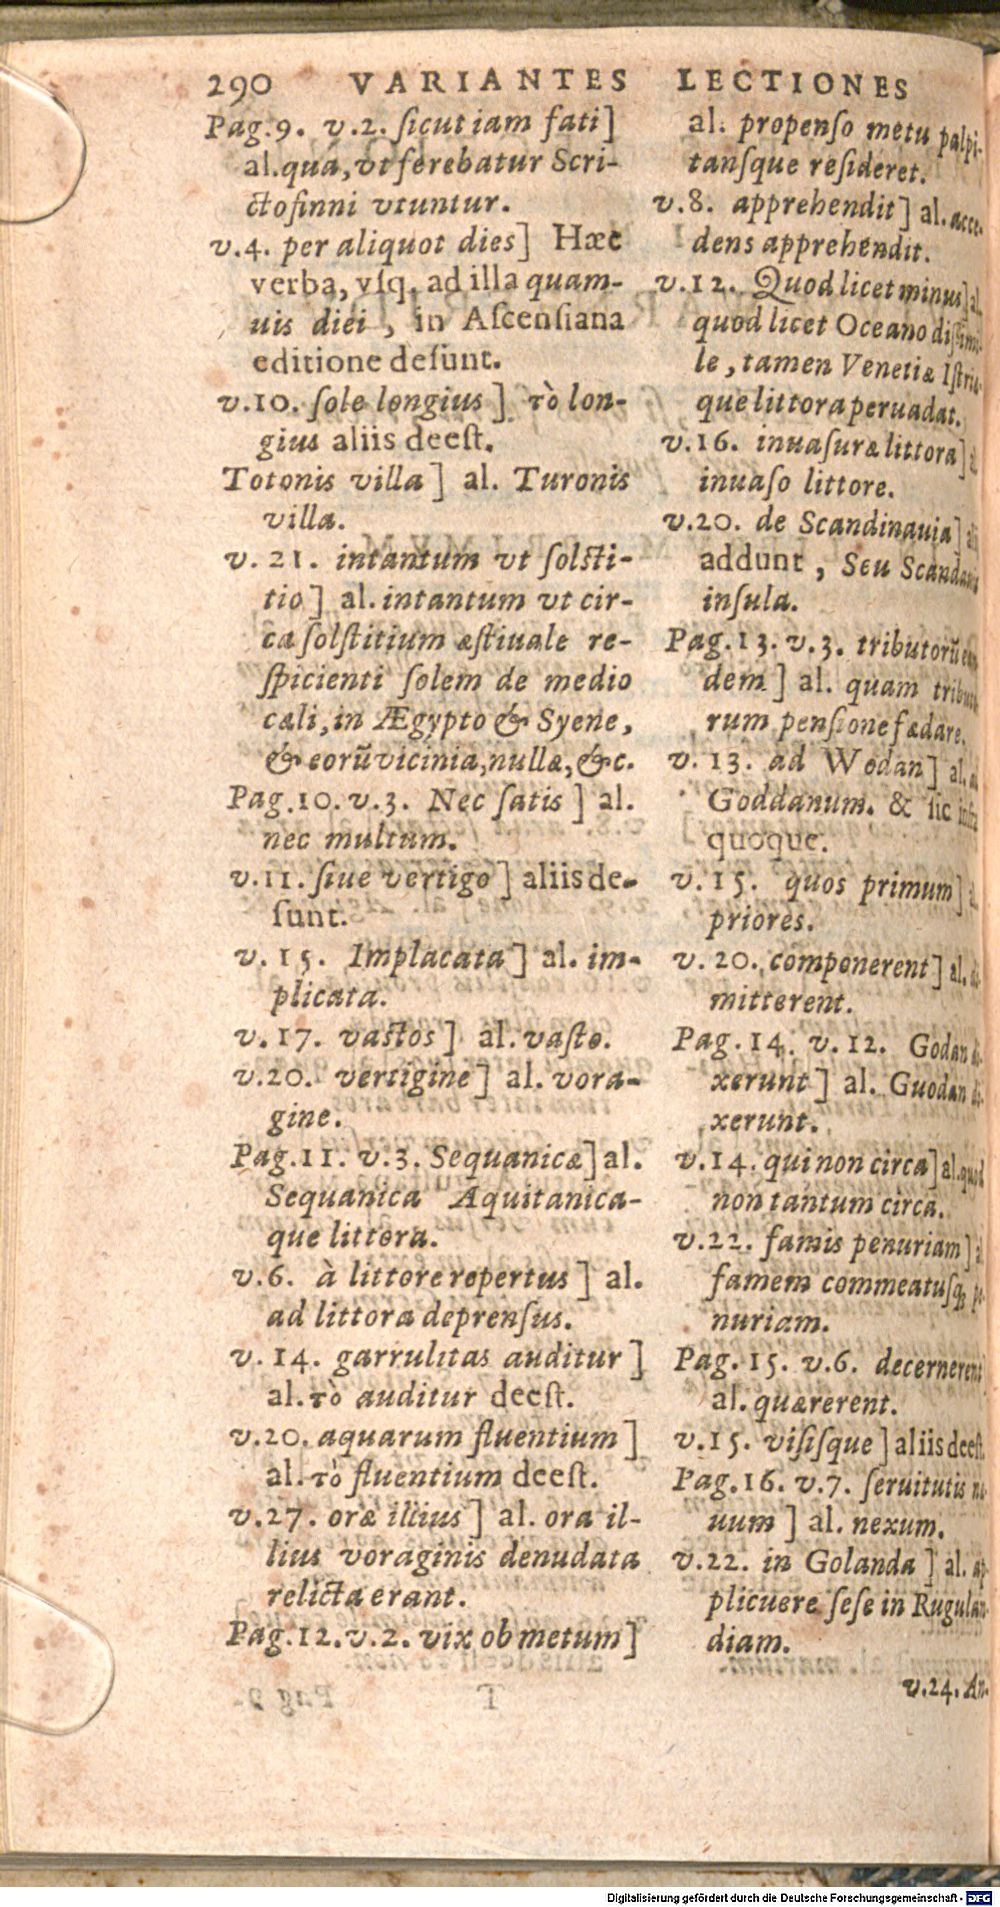 290 VARIANTES LECTIONES
Pag.9. v.2. ſicut iam fati]
al. quá, vt ferebatur Scri-
ctofinni vtuntur.
v.4. per aliquot dies] Hæc
verba, vſq. ad illa quam-
uis diei, in Aſcenſiana
editione deſunt.
v.10. ſole longius] τὸ lon-
gius aliis deeſt.
Totonis villa] al. Turonis
villa.
v. 21. intantum vt ſolſti-
tio] al. intantum vt cir-
ca ſolſtitium æſtiuale re-
ſpicienti ſolem de medio
cæli, in Ægypto & Syene,
& eorũ vicinia, nullæ, &c.
Pag.10. v.3. Nec ſatis] al.
nec multum.
v.11. ſiue vertigo] aliis de-
ſunt.
v. 15. Implacata] al. im-
plicata.
v.17. vaſtos] al. vaſto.
v.20. vertigine] al. vora-
gine.
Pag.11. v.3. Sequanicæ] al.
Sequanica Aquitanica-
que littora.
v.6. à littore repertus] al.
ad littora deprenſus.
v. 14. garrulitas auditur]
al. τὸ auditur deeſt.
v.20. aquarum fluentium]
al. τὸ fluentium deeſt.
v.27. oræ illius] al. ora il-
lius voraginis denudata
relicta erant.
Pag.12. v.2. vix ob metum]
al. propenſo metu palpi-
tanſque reſideret.
v.8. apprehendit] al. acce-
dens apprehendit.
v.12. Quod licet minus] al.
quod licet Oceano diſſimi-
le, tamen Venetiæ Iſtriæ-
que littora peruadat.
v.16. inuaſuræ littora]
inuaſo littore.
v.20. de Scandinauia]
addunt, Seu Scandauia
inſula.
Pag.13. v.3. tributorũ
dem] al. quam tributo-
rum penſione fædare.
v. 13. ad Wodan] al. ad
Goddanum. & ſic infra
quoque.
v. 15. quos primum]
priores.
v. 20. componerent] al. di-
mitterent.
Pag.14. v.12. Godan di-
xerunt] al. Guodan di-
xerunt.
v.14. qui non circa] al. quod
non tantum circa.
v.22. famis penuriam]
famem commeatuſq. pe-
nuriam.
Pag. 15. v.6. decernerent
al. quærerent.
v.15. viſiſque] aliis deeſt.
Pag.16. v.7. ſeruitutis
uum] al. nexum.
v.22. in Golanda] al. ap-
plicuere ſeſe in Rugulan-
diam.
v.24. An-
Digitalisierung gefördert durch die Deutsche Forschungsgemeinschaft - DFG